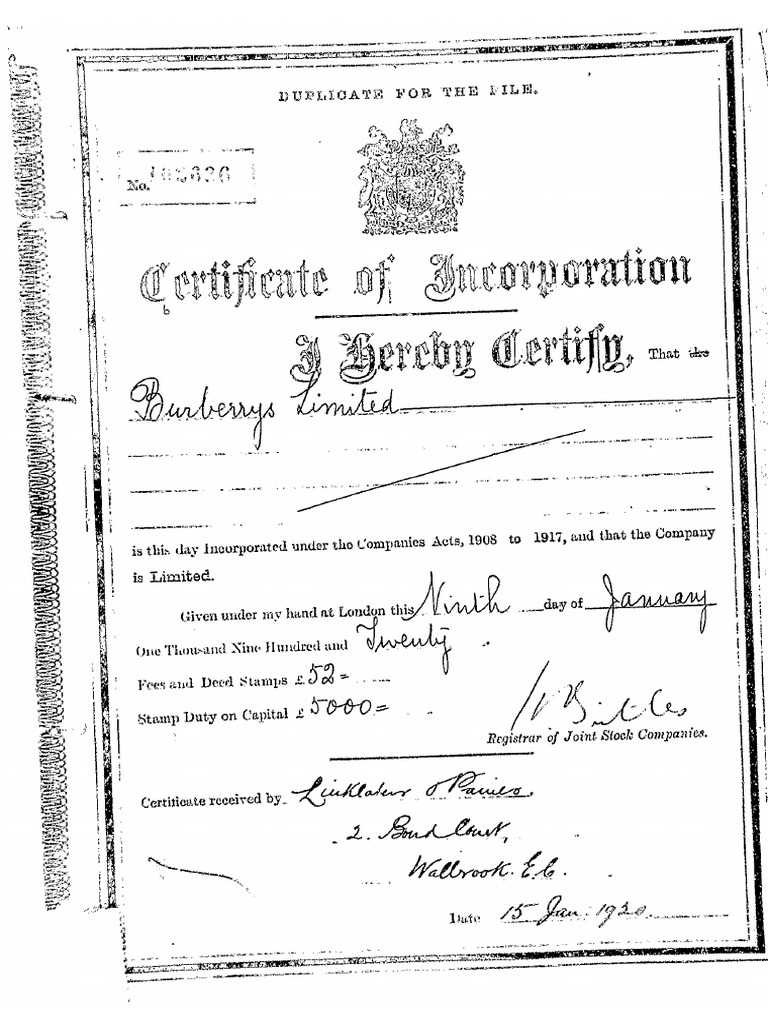 DUPLICATE FOR THE FILE.
No.
Certificate of Incorporation
I Hereby Certify, That the
Burberrys Limited
is this day Incorporated under the Companies Acts, 1908 to 1917, and that the Company
is Limited.
Given under my hand at London this Ninth day of January
One Thousand Nine Hundred and Twenty.
Fees and Deed Stamps £ 52=
Stamp Duty on Capital £ 5000=
Registrar of Joint Stock Companies.
Certificate received by Linklaters & Paines.
2. Bond Court,
Wallbrook. E.C.
Date 15 Jan. 1920